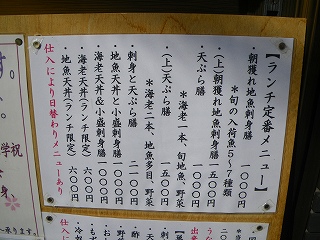 【ランチ定番メニュー】
・朝獲れ地魚刺身膳 一〇〇〇円
*旬の入荷魚5~7種類
・(上)朝獲れ地魚刺身膳 一五〇〇円
・天ぷら膳 一〇〇〇円
*海老一本、旬地魚、野菜
・(上)天ぷら膳 一五〇〇円
*海老二本、地魚多目、野菜
・刺身と天ぷら膳 二一〇〇円
・地魚天丼と小盛刺身膳 一〇〇〇円
・海老天丼&小盛刺身膳 一〇〇〇円
・海老天丼(ランチ限定) 六〇〇円
・地魚天丼(ランチ限定) 六〇〇円
仕入により日替わりメニューあり